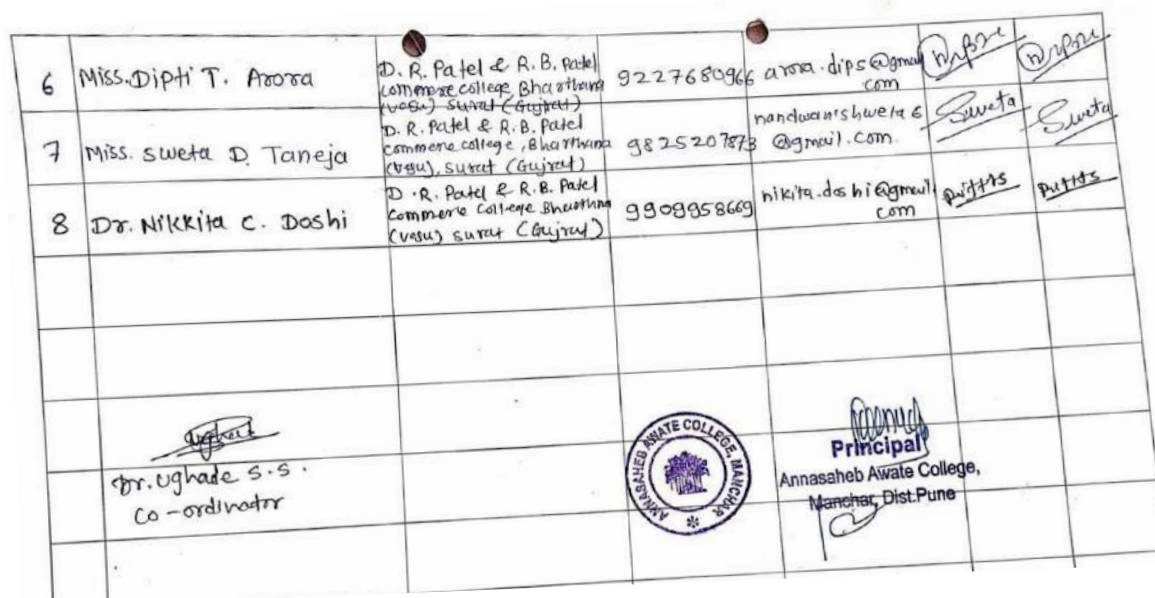 6
Miss. Dipti T. Arora
D. R. Patel & R. B. Patel
commerce college, Bharthana
(vesu) Surat (Gujrat)
9227680966
arora.dips@gmail
com
7
Miss. Sweta D. Taneja
D. R. Patel & R. B. Patel
commerce college, Bharthana
(vesu), Surat (Gujrat)
9825207873
nandwanishweta6
@gmail.com
Sweta
Sweta
8
Dr. Nikkita C. Doshi
D. R. Patel & R. B. Patel
Commerce College Bharthna
(vesu) Surat (Gujrat)
9909958669
nikita.doshi@gmail
com
Dr. Ughade S.S.
Co-ordinator
ANNASAHEB AWATE COLLEGE, MANCHAR
Principal
Annasaheb Awate College,
Manchar, Dist.Pune